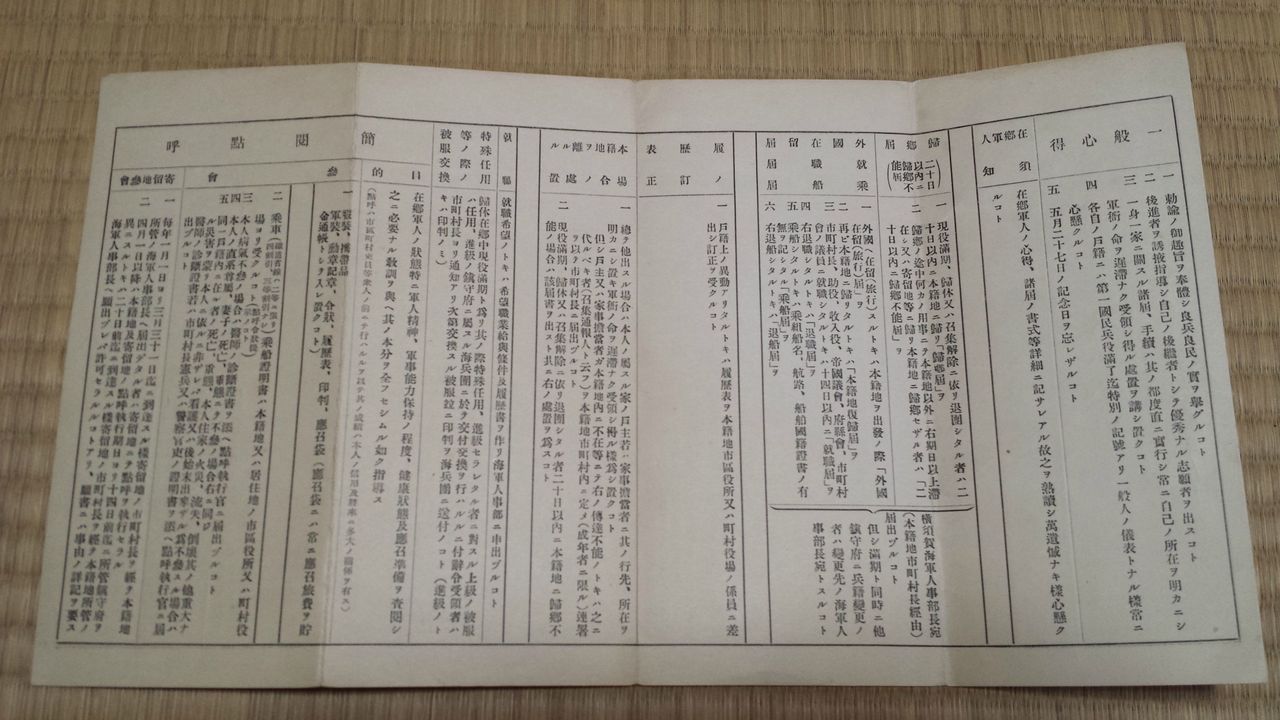 一般心得
一 勅諭ノ御趣旨ヲ奉體シ良兵良民ノ實ヲ擧グルコト
二 後進者ヲ誘掖指導シ自己ノ後繼者トシテ優秀ナル志願者ヲ出スコト
三 一身一家ニ關スル諸屆、手續ハ其ノ都度直ニ實行シ常ニ自己ノ所在ヲ明カニシ
軍衙ノ命ヲ遲滯ナク受領シ得ル處置ヲ講シ置クコト
四 各自ノ戸籍ニハ第一國民兵役滿了迄特別ノ記號アリ一般人ノ儀表トナル樣常ニ
心懸クルコト
五 五月二十七日ノ記念日ヲ忘レザルコト
在鄕軍人須知
在鄕軍人ノ心得、諸屆ノ書式等詳細ニ記サレアル故之ヲ熟讀シ萬遺憾ナキ樣心懸ク
ルコト
歸鄕屆
(二十日以內ニ歸鄕不能屆)
一 現役滿期、歸休又ハ召集解除ニ依リ退團シタル者ハ二
十日以內ニ本籍地ニ歸リ「歸鄕屆」ヲ
歸鄕ノ途中何カノ用事ニテ本籍地以外ニ右期日以上滯
在シ又ハ寄留地等ニ歸リ本籍地ニ歸鄕セザル者ハ「二
十日以內歸鄕不能屆」ヲ
外國在留屆
就職屆
乘船屆
二 外國へ(在留、旅行)スルトキハ本籍地ヲ出發ノ際「外國
在留(旅行)屆」ヲ
再ビ本籍地ニ歸リタルトキハ「本籍地復歸屆」ヲ
三 市町村長、助役、收入役、帝國議會、府縣會、市町村
會ノ議員ニ就職シタルトキハ十四日以內ニ「就職屆」ヲ
四 右退職シタルトキハ「退職屆」ヲ
五 乘船シタルトキハ乘組船名、航路、船舶國籍證書ノ有
無ヲ記シ「乘船屆」ヲ
六 右退船シタルトキハ「退船屆」ヲ
橫須賀海軍人事部長宛
(本籍地市町村長經由)
屆出ヅルコト
但シ滿期ト同時ニ他
鎭守府ニ兵籍變更ノ
者ハ變更先ノ海軍人
事部長宛トスルコト
履歷表ノ訂正
一 戸籍上ノ異動アリタルトキハ履歷表ヲ本籍地市區役所又ハ町村役場ノ係員ニ差
出シ訂正ヲ受クルコト
本籍地ヲ離ルル場合ノ處置
一 總テ他出スル場合ハ本人ノ屬スル家ノ戸主若ハ家事擔當者ニ其ノ行先、所在ヲ
明カニシ軍衙ノ命ヲ遲滯ナク受領シ得ル樣爲シ置クコト
但シ戸主又ハ家事擔當者ガ本籍地內ニ不在等ニテ右ノ傳達不能ノトキハ之ニ
代ルベキ者(召集通報人ト云フ)ヲ本籍地市町村內ニ定メ(成年者ニ限ル)連署
ヲ以テ市町村長ニ屆出ヅルコト
二 現役滿期、歸休又ハ召集解除ニ依リ退團シタル者二十日以內ニ本籍地ニ歸鄕不
能ノ場合ハ該屆書ヲ出スト共ニ右ノ處置ヲ爲スコト
就職
就職希望ノトキハ希望職業給與條件及履歷書ヲ作リ海軍人事部ニ申出ヅルコト
特殊任用等ノ際ノ被服交換
歸休在鄕中現役滿期ト爲リ其ノ際特殊任用、進級セラレタル者ニ對スル上級ノ被服
ハ任用、進級ノ鎭守府ニ屬スル海兵團ニ於テ交付交換ヲ行ハルルニ付辭令受領者ハ
市町村長ヨリ通知アリ次第交換スル被服竝ニ印判ヲ海兵團ニ送付ノコト(進級ノト
キハ印判ノミ)
簡閱點呼
目的
在鄕軍人ノ狀態特ニ軍人精神、軍事能力保持ノ程度、健康狀態及應召準備ヲ査閱シ
之ニ必要ナル敎訓ヲ與ヘ其ノ本分ヲ全フセシムル如ク指導ス
參會
一 服裝、携帶品
軍裝、勳章記章、令狀、履歷表、印判、應召袋(應召袋ニハ常ニ應召旅費ヲ貯
金通帳トシテ入レ置クコト)
二 乘車
乘船證明書ハ本籍地又ハ居住地ノ市區役所又ハ町村役
場ヨリ受クルコト
三 本人病氣不參ノ場合ハ醫師ノ診斷證書ヲ添ヘ點呼執行官ニ屆出ヅルコト
四 本人ノ直系尊屬、妻子ノ死亡、重態ニテ不參ノ場合右ニ同ジ
寄留地參會
一 每年一月一日ヨリ三月三十一日迄ニ到達スル樣寄留地ノ市町村長ヲ經テ本籍地
所管ノ海軍人事部長ヘ屆出デタル者ハ寄留地ニテ點呼ヲ執行セラル
二 四月一日以降ハ本籍地及寄留地ノ點呼執行期日ヨリ十四日前迄ニ所管鎭守府ヲ
海軍人事部長ヘ願出ヅレバ許可セラルルコトアリ、願書ニハ事由ノ詳記ヲ要ス